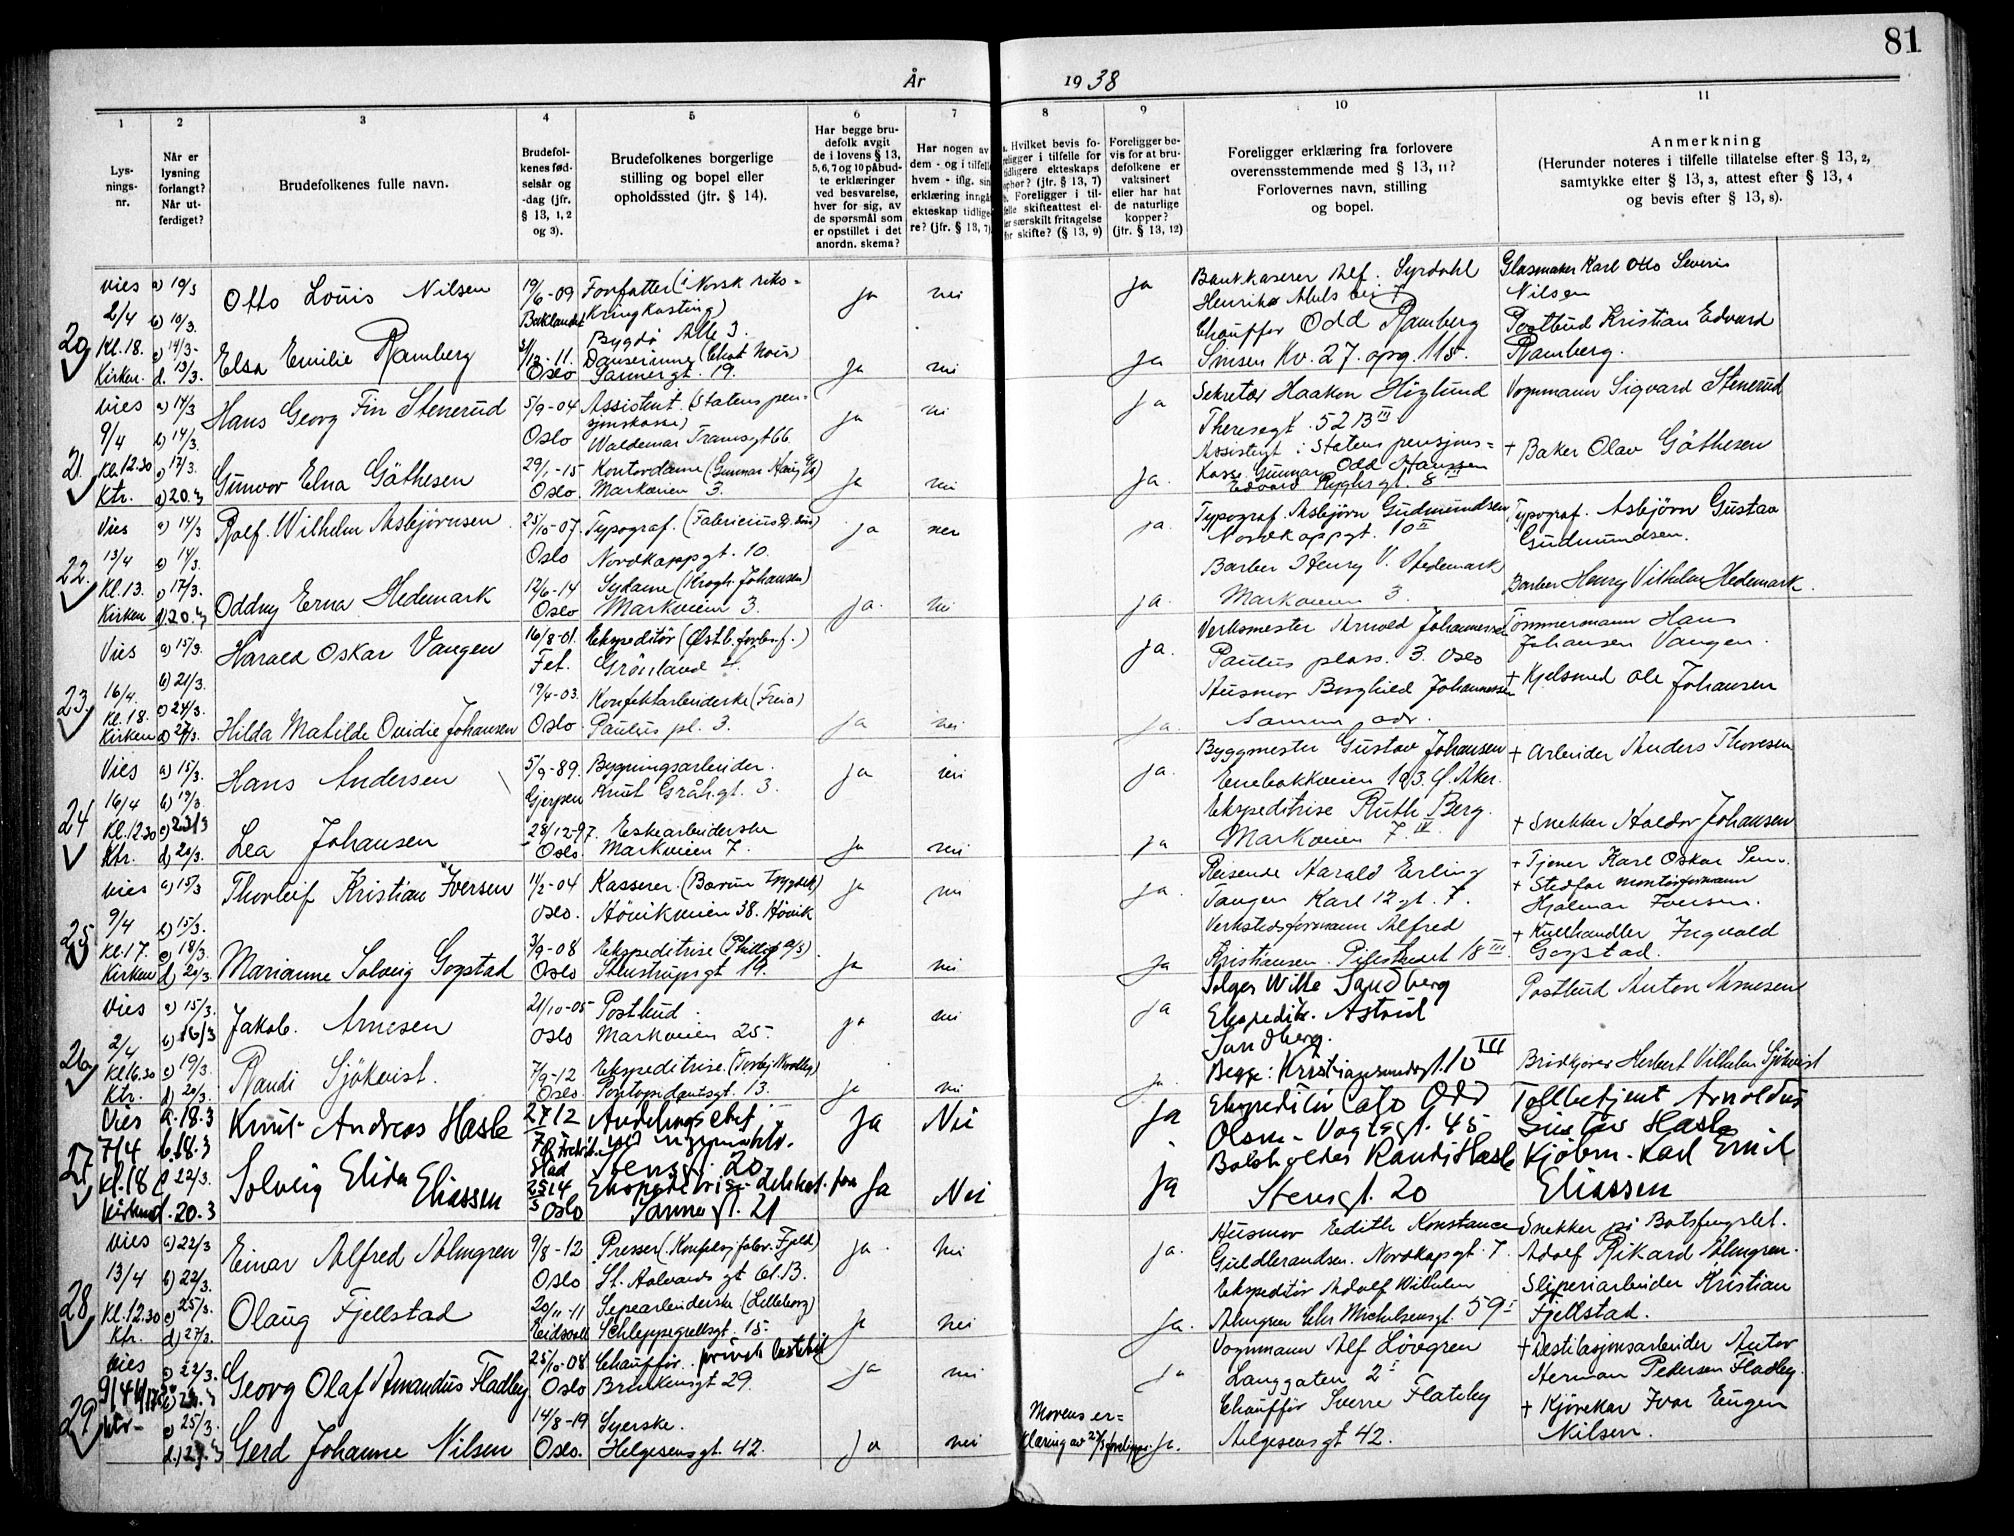 81
År 1938
1
2
3
4
5
6
7
8
9
10
11
Lys-
nings-
nr.
Når er
lysning
forlangt?
Når ut-
ferdiget?
Brudefolkenes fulle navn.
Brudefol-
kenes fød-
selsår og
-dag (jfr.
§ 13, 1, 2
og 3).
Brudefolkenes borgerlige
stilling og bopel eller
opholdssted (jfr. § 14).
Har begge bru-
defolk avgit
de i lovens § 13,
5, 6, 7 og 10 påbud-
te erklæringer
ved besvarelse,
hver for sig, av
de spørsmål som
er opstillet i det
anordn. skema?
Har nogen av
dem - og i tilfelle
hvem - iflg. sin
erklæring inngå
ekteskap tidlige
re? (jfr. § 13, 7)
a. Hvilket bevis fo-
religger i tilfelle for
tidligere ekteskaps
ophør? (jfr. § 13, 7)
b. Foreligger i til-
felle skifteattest el-
ler særskilt fritagelse
for skifte? (§ 13, 9)
Foreligger be-
vis for at bru-
defolkene er
vaksinert
eller har hat
de naturlige
kopper?
(jfr. § 13, 12)
Foreligger erklæring fra forlovere
overensstemmende med § 13, 11?
Forlovernes navn, stilling
og bopel.
Anmerkning
(Herunder noteres i tilfelle tillatelse efter § 13, 2,
samtykke efter § 13, 3, attest efter § 13, 4
og bevis efter § 13, 8).
20
vies
2/4
Kl. 18.
Kirken.
a) 10/3
b) 10/3.
c) 14/3-
d. 13/3.
Otto Louis Nilsen
19/6-09
Baklandet
Forfatter (i Norsk riks=
kringkasting)
Bygdø Allé 3.
ja
nei
ja
Bankkaserer Alf. Syrdahl
Glasmaker Karl Otto Severin
Nilsen
Elsa Emilie Ramberg
-11.
Oslo
Danserinne (Chat Noir)
Sannergt. 19.
ja
nei
ja
Chauffør Odd Ramberg
Sinsen Kv. 27. opg. 115.
Postbud Kristian Edvard
Ramberg.
21.
vies
9/4
Kl. 12.30
Ktr.
a) 14/3
b) 14/3.
c) 17/3.
d) 20.3
Hans Georg Fin Stenerud
5/9-04
Oslo
Assistent. (Statens pen-
sjonskasse)
Waldemar Tranesgt 66
ja
ni
ja
Sekretær Haakon Höglund
Theresegt. 52 B III
Vognmann Sigvard Stenerud
Gunvor Elna Göthesen
29/1-15
Oslo.
Kontordame (Gunnar Haug A/S)
Markveien 3.
ja
nei
ja.
Assistent i Statens pensjons=
kasse Gunnar Odd Hanssen
Edvard Griegs gt. 8 III
+ Baker Olav Göthesen
22.
Vies
13/4
Kl. 13.
Kirken
a) 14/3
b) 14/3.
c) 17/3.
d) 20.3
Rolf. Wilhelm Asbjørnsen
25/10-07.
Oslo
Typograf. (Fabricius & Sön)
Nordkappgt. 10.
ja
nei
ja.
Typograf. Asbjörn Gudmundsen
Nordkappgt. 10 II
Typograf. Asbjörn Gustav
Gudmundsen.
Oddny Erna Hedemark
12/6-14
Oslo
Sydame (Krogh. Johansen)
Markveien 3.
ja.
nei
ja.
Barber Henry V. Hedemark
Markveien 3.
Barber Henry Vilhelm Hedemark.
23.
Vies
16/4.
Kl. 18.
Kirken
a) 15/3.
b) 21/3.
c) 24/3.
d) 27/3.
Harald Oskar Vangen
16/8-01.
Fet.
Ekspeditör (Østl. forbr. f.)
Grönland 4.
ja.
Verksmester Arnold Johannesen
Paulus plass. 3. Oslo
Tömmermann Hans
Johansen Vangen.
Hilda Matilde Ovidie Johansen
19/4-03.
Oslo
Konfektarbeiderske (Freia)
Paulus pl. 3.
ja
nei
ja.
Husmor Borghild Johannessen
Samme adr.
+ Kjelsmed Ole Johansen
24
Vies
16/4
Kl. 12.30
Ktr.
a) 15/3.
b) 19/3.
c) 23/3
d) 20/3.
Hans Andersen
5/9-89.
Gjerpen
Bygningsarbeider.
Knut Grahsgt. 3.
ja
nei
ja.
Byggmester Gustav Johansen
Enebakkveien 103. Ö. Aker.
+ Arbeider Anders Thoresen
Lea Johansen
28/12-97.
Oslo
Eskearbeiderske
Markveien 7.
ja
nei
ja
Ekspeditrise Ruth Berg.
Markveien 7 IV.
+ Snekker Haldor Johansen
25
vies
9/4
Kl. 17.
Kirken
a) 15/3
b) 15/3.
c) 18/3.
d) 20/3.
Thorleif Kristian Iversen
11/2-04
Oslo.
Kasserer. (Bærum trygdek)
Hövikveien 38. Hövik
ja
nei
ja.
Reisende Harald Erling
Tangen Karl 12 gt. 7.
+ Tjener Karl Oskar
+ Stedfar montörformann
Hjalmar Iversen.
Marianne Solveig Gogstad
3/9-08
Oslo
Ekspeditrise (Phillips A/S)
Stenstrupsgt 19.
ja
nei
ja
Verkstedsformann Alfred
Kristiansen. Pilestredet 18 III
+ Kullhandler Ingvald
Gogstad.
26
Vies
2/4
Kl 16.30
Ktr.
a) 15/3.
b) 16/3
c) 19/3.
d) 20/3.
Jakob. Arnesen
21/10-05
Oslo
Postbud.
Markveien 25.
ja
nei
ja
Selger Wille Sandberg
Ekspeditr. Astrid
Sandberg.
Begge: Kristiansundsgt. 10 III
Postbud Anton Arnesen
Randi Sjökvist.
7/9-12
Oslo
Ekspeditrise.
Pontopidansgt. 13.
ja
nei
ja.
Brudkjører Herbert Vilhelm Sjökvist
27
Vies
7/4
Kl. 18
Kirken
a. 18.3
b. 18.3
c 22/3.
d. 20.3
Knut Andreas Hasle
27 12
Avdelingschef
Stensgt. 20
ja
Nei
ja
Ekspeditör Cato Odd
Olsen - Vogtsgt. 45
Tollbetjent Arnoldus
Gustav Hasle
Solveig Elida Eliassen
25 14
5 Oslo
Sannergt. 21
ja
Nei
ja
Bolsholder Randi Hasle
Stensgt. 20
Kjøbm. Karl Emil
Eliassen
28
vies
13/4
Kl. 12.30
Ktr.
a) 22/3
b) 22/3.
c) 25/3.
d) 27/3.
Einar Alfred Almgren
9/8-12
Oslo
Presser (Konfeksj. fabr. Fjeld)
St. Halvards gt 61. B.
ja.
nei
ja.
Husmor Edith Konstance
Guldbrandsen. Nordkapgt. 7.
Snekker på Botsfengslet.
Adolf Rikard Almgren.
Olaug Fjellstad
20/11-11
Eidsvoll
Sepearbeiderske (Lilleborg)
Schleppegrellsgt. 15.
ja
nei
ja.
Ekspeditör Adolf Wilhelm
Almgren Chr Michelsensgt. 59 I
Sliperiarbeider Kristian
Fjellstad.
29
vies
9/4
Ktr.
a) 22/3.
c) 25/3.
Georg Olaf Amandus Fladby
25/10-08
Oslo
Chauffør.. privat lastebil
Brinkensgt 29.
ja
nei
ja
Vognmann Alf Lövgren
Langgaten 2 I
+ Destilasjonsarbeider Anton
Herman Pedersen Fladby.
Gerd Johanne Nilsen
14/8-19
Oslo.
Syerske.
Helgesensgt. 42.
ja
nei
Morens er=
klæring av 21/3 foreligger
ja.
Chauffør Sverre Flateby
Helgesensgt 42.
+ Kjörekar Ivar Eugen
Nilsen.